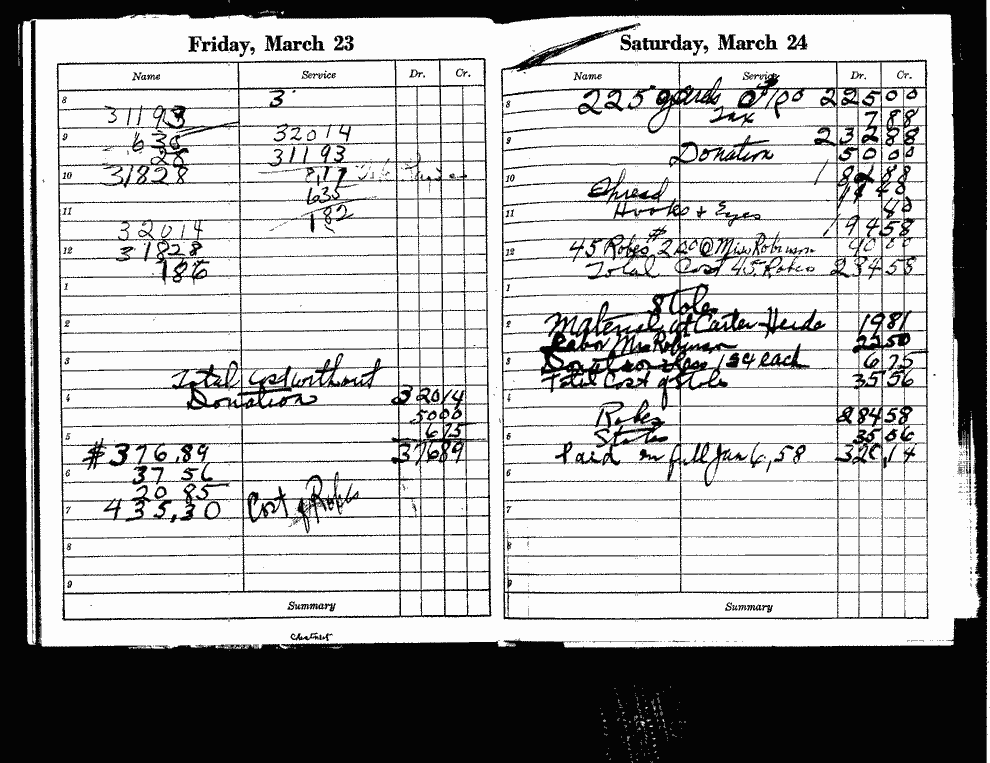 Friday, March 23
Name Service Dr. Cr.
8 3
31193
9 635 32014
28 31193
10 31828 8,17
635
11 182
32014
12 31828
186
1
2
3
Total Cost without
4 Donation 32014
5000
5 675
$376.89 37689
6 37 56
20 85
7 435,30 Cost of Robes
8
9
Summary
Chestnut
Saturday, March 24
Name Service Dr. Cr.
8 225 yards @ $1.00 22500
Tax 788
9 23288
Donation 5000
10 18288
Thread
11 Hooks + Eyes 40
19458
12 45 Robes $2.00 @ Miss Robinson 9000
Total Cost 45 Robes 28458
1
Stoles
2 Material at Carter Heide 1981
Labor Mrs Robinson 2250
3 Donation Less 15¢ each 675
Total Cost of Stole 3556
4
Robes 28458
5 Stoles 3556
Paid in full Jan 6, 58 320,14
6
7
8
9
Summary